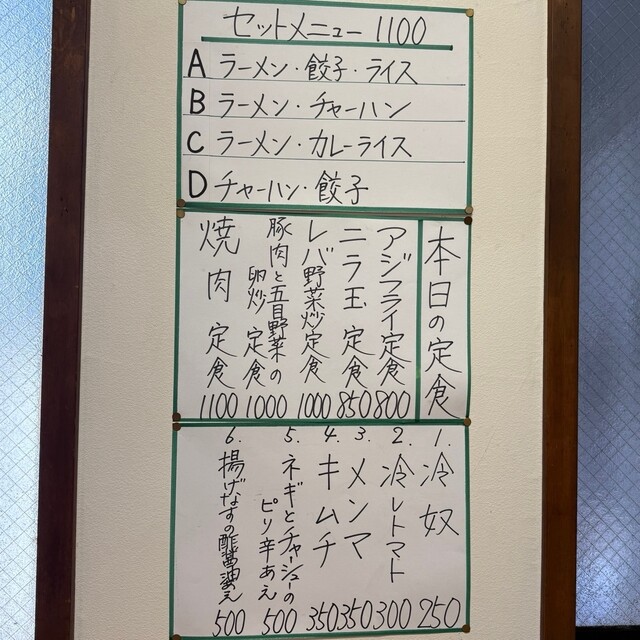 セットメニュー 1100
A ラーメン・餃子・ライス
B ラーメン・チャーハン
C ラーメン・カレーライス
D チャーハン・餃子
本日の定食
アジフライ定食 800
ニラ玉定食 850
レバ野菜炒定食 1000
豚肉と五目野菜の
卵炒定食 1000
焼肉定食 1100
1. 冷奴 250
2. 冷しトマト 300
3. メンマ 350
4. キムチ 350
5. ネギとチャーシューの
ピリ辛あえ 500
6. 揚げなすの酢醤油あえ 500